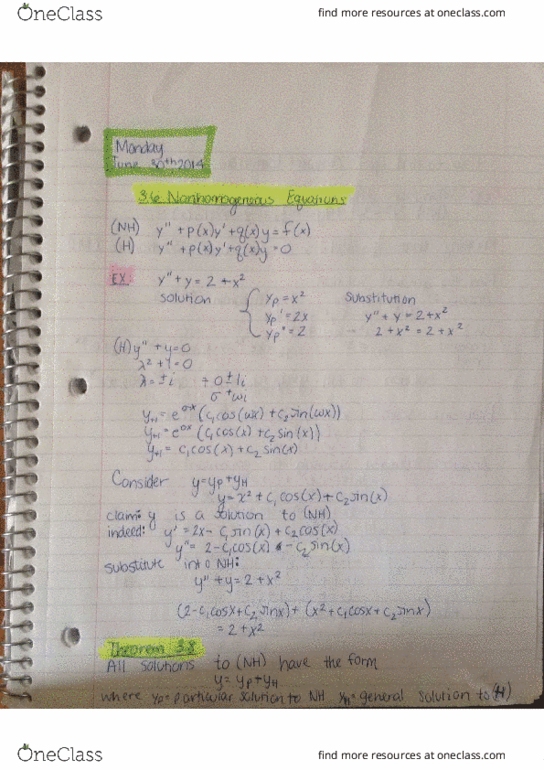 OneClass
find more resources at oneclass.com
Monday
June 30th 2014
3.6 Nonhomogenous Equations
(NH) y" + p(x)y' + q(x)y = f(x)
(H) y" + p(x)y' + q(x)y = 0
EX: y" + y = 2 + x²
solution
yp = x²
yp' = 2x
yp" = 2
Substitution
y" + y = 2 + x²
2 + x² = 2 + x²
(H) y" + y = 0
λ² + 1 = 0
λ = ± i
0 ± 1i
σ ± ωi
yH = e^σx (c₁cos(ωx) + c₂sin(ωx))
yH = e^0x (c₁cos(x) + c₂sin(x))
yH = c₁cos(x) + c₂sin(x)
Consider y = yp + yH
y = x² + c₁cos(x) + c₂sin(x)
claim: y is a solution to (NH)
indeed: y' = 2x - c₁sin(x) + c₂cos(x)
y" = 2 - c₁cos(x) - c₂sin(x)
substitute into NH:
y" + y = 2 + x²
(2 - c₁cosx + c₂sinx) + (x² + c₁cosx + c₂sinx)
= 2 + x²
Theorem 3.8
All solutions to (NH) have the form
y = yp + yH
where yp = particular solution to NH yH = general solution to (H)
OneClass
find more resources at oneclass.com